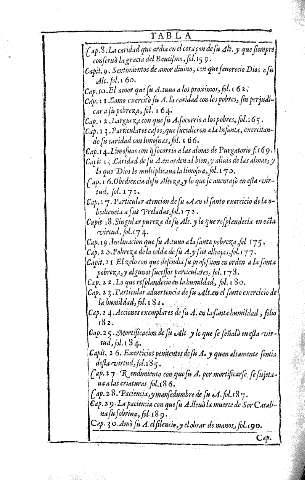 TABLA
Cap. 8. La caridad que ardia en el coraçon de su Alt. y que siempre
conseruò la gracia del Bautismo, fol. 159.
Capit. 9. Sentimientos de amor diuino, con que fauorecio Dios a su
Alt. fol. 160.
Cap. 10. El amor que su A. tuuo a los proximos, fol. 162.
Cap. 11. Como exercitò su A. la caridad con los pobres, sin perjudi-
car a su pobreza, fol. 164.
Cap. 12. Largueza con que su A. socorriò a los pobres, fol. 165.
Cap. 13. Particulares casos, que sucedieron a la Infanta, exercitan-
do su caridad con limosnas, fol. 166.
Cap. 14. Limosnas con q̃ socorria a las almas de Purgatorio f. 169.
Capit. 15. Caridad de su A. en orden al bien, y aliuio de las almas, y
lo que Dios le multiplicaua la limosna, fol. 170.
Cap. 16. Obediencia de su Alteza, y lo que se auentajò en esta vir-
tud, fol. 171.
Cap. 17. Particular atencion de su A. en el santo exercicio de la o-
bediencia a sus Preladas, fol. 172.
Capit. 18. Singular pureza de su Alt. y lo que resplandeciò en esta
virtud, fol. 174.
Cap. 19. Inclinacion que su A. tuuo a la santa pobreza, fol. 175.
Cap. 20. Pobreza de la celda de su A. y sus alhajas, fol. 177.
Capit. 21. El zelo con que defendia su profession en orden a la santa
pobreza, y algunos sucessos particulares, fol. 178.
Cap. 22. Lo que resplandeciò en la humildad, fol. 180.
Cap. 23. Particular aduertencia de su Alt. en el santo exercicio de
la humildad, fol. 181.
Cap. 24. Acciones exemplares de su A. en la santa humildad, folio
182.
Cap. 25. Mortificacion de su Alt. y lo que se señalò en esta vir-
tud, fol. 184.
Capit. 26. Exercicios penitentes de su A. y quan altamente sentia
desta virtud, fol. 185.
Cap. 27. Rendimiento con que su A. por mortificarse se sujeta-
ua a las criaturas, fol. 186.
Cap. 28. Paciencia, y mansedumbre de su A. fol. 187.
Cap. 29. La paciencia con que su A. lleuò la muerte de Sor Catali-
na su sobrina, fol. 189.
Cap. 30. Amò su A. el silencio, y el obrar de manos, fol. 190.
Cap.